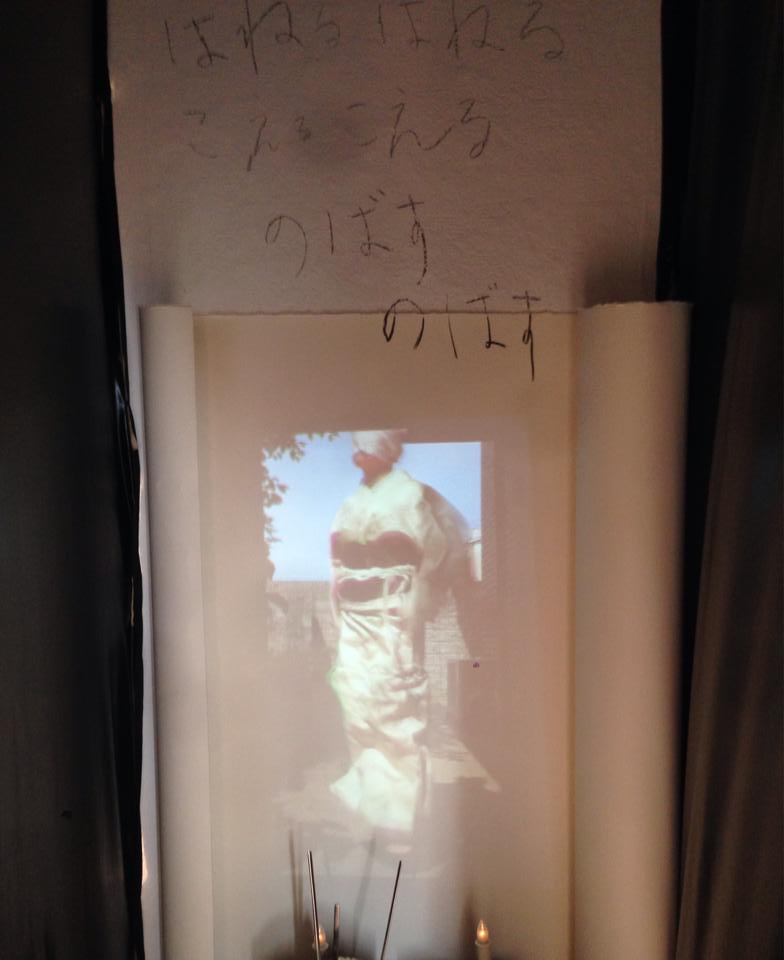 はねるはねる
こえるこえる
のばす
のばす